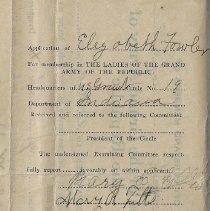 Application of Elizabeth Fowler
For membership in THE LADIES OF THE GRAND
ARMY OF THE REPUBLIC.
Headquarters of Circle No. 19
Department of
Received and referred to the following Committee:
President of the Circle
The undersigned Examining Committee respect-
fully report favorably on within applicant.
Mary
Mary A.